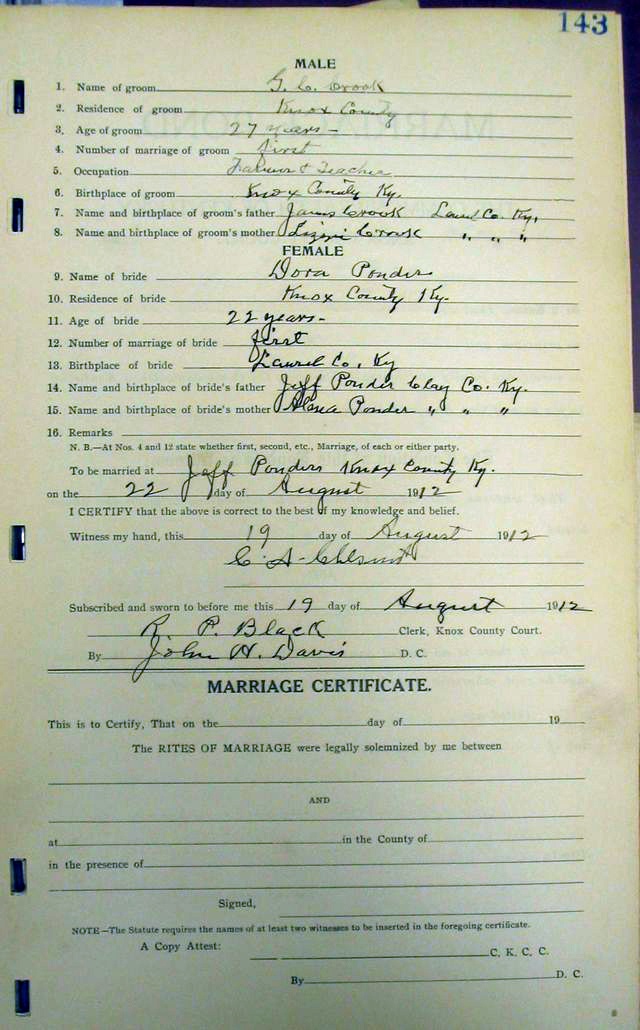 143
MALE
1. Name of groom G. C. Crook
2. Residence of groom Knox County
3. Age of groom 27 years -
4. Number of marriage of groom first
5. Occupation Farmer & Teacher
6. Birthplace of groom Knox County Ky.
7. Name and birthplace of groom's father James Crook Laurel Co. Ky,
8. Name and birthplace of groom's mother Lizzie Crook " " "
FEMALE
9. Name of bride Dora Ponder
10. Residence of bride Knox County Ky.
11. Age of bride 22 years -
12. Number of marriage of bride first
13. Birthplace of bride Laurel Co, Ky
14. Name and birthplace of bride's father Jeff Ponder Clay Co. Ky.
15. Name and birthplace of bride's mother Ponder " " "
16. Remarks
N. B.—At Nos. 4 and 12 state whether first, second, etc., Marriage, of each or either party.
To be married at Jeff Ponders Knox County Ky.
on the 22 day of August 1912
I CERTIFY that the above is correct to the best of my knowledge and belief.
Witness my hand, this 19 day of August 1912
Subscribed and sworn to before me this 19 day of August 1912
R. P. Black Clerk, Knox County Court.
By John H. Davis D. C.
MARRIAGE CERTIFICATE.
This is to Certify, That on the day of 19
The RITES OF MARRIAGE were legally solemnized by me between
AND
at in the County of
in the presence of
Signed,
NOTE—The Statute requires the names of at least two witnesses to be inserted in the foregoing certificate.
A Copy Attest: C. K. C. C.
By D. C.